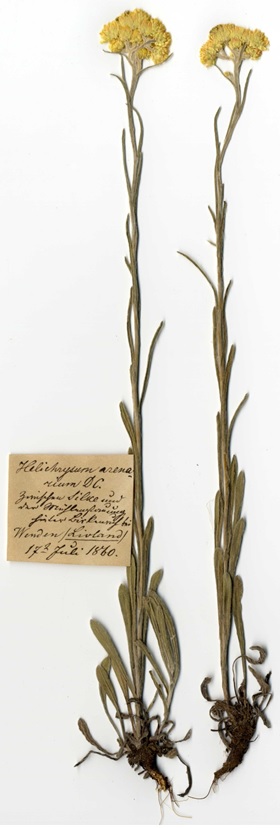 Helichrysum arena-
rium DC.
Zwischen Silke und
der
hinter bei
Wenden (Livland)
17. Juli 1860.